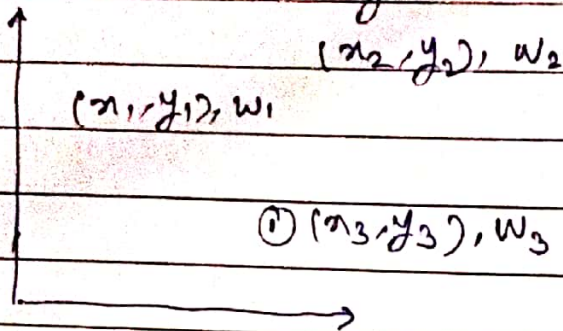 (x₂, y₂), w₂
(x₁, y₁), w₁
① (x₃, y₃), w₃